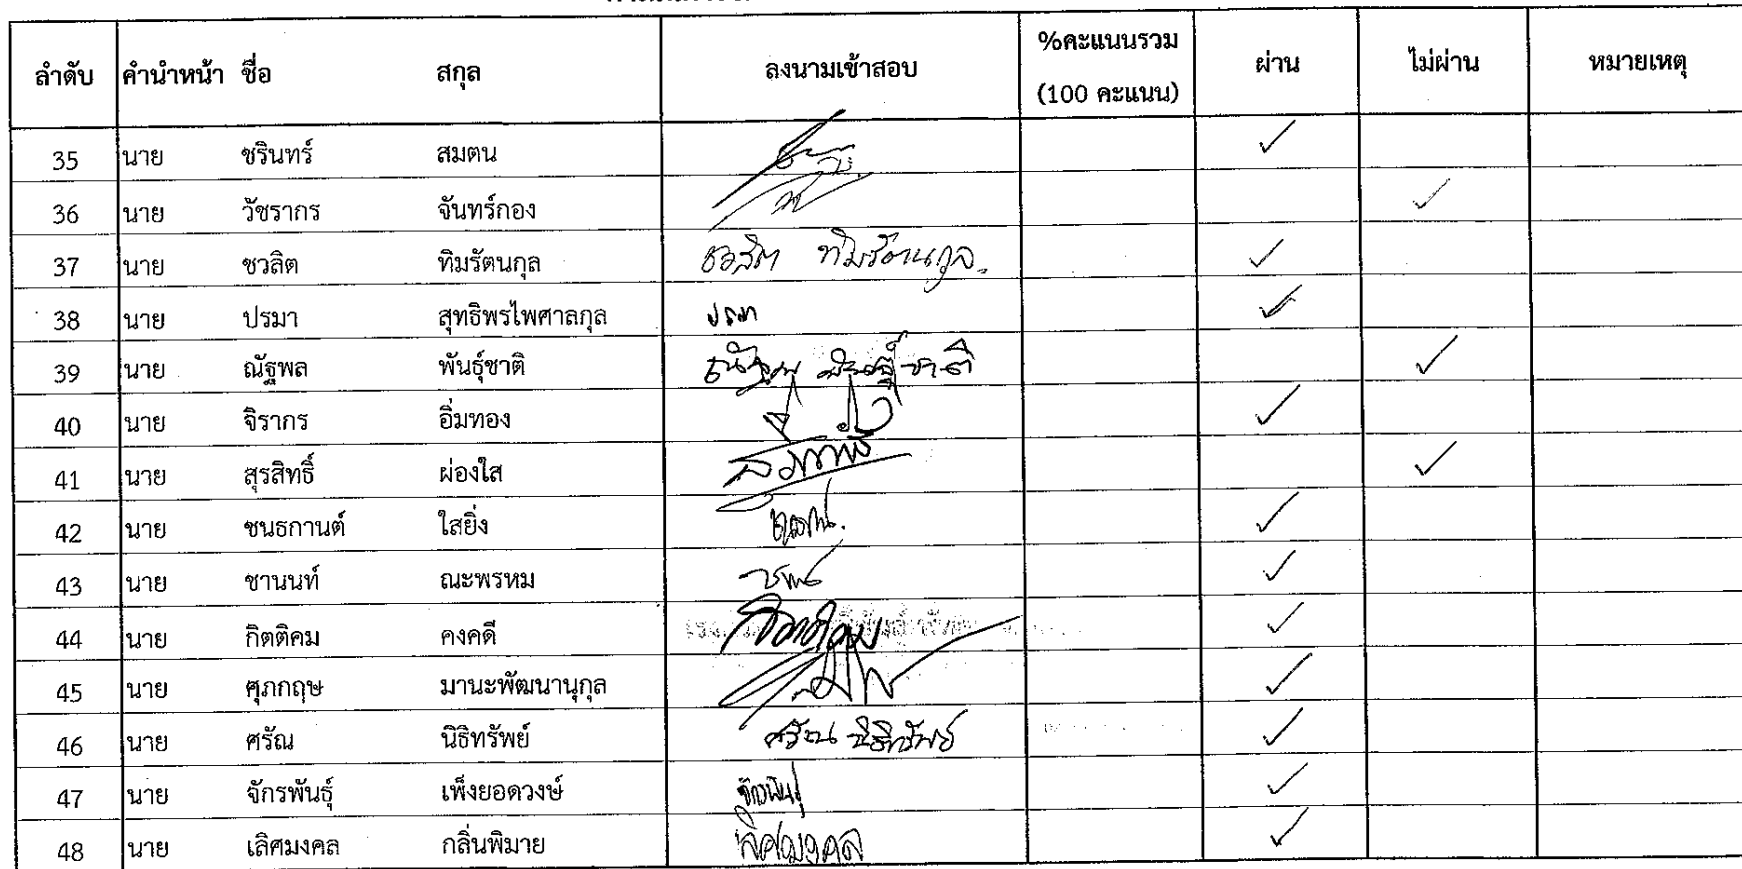 ลำดับ คำนำหน้า ชื่อ สกุล ลงนามเข้าสอบ %คะแนนรวม (100 คะแนน) ผ่าน ไม่ผ่าน หมายเหตุ
35 นาย ชรินทร์ สมตน ✓
36 นาย วัชรากร จันทร์กอง ✓
37 นาย ชวลิต ทิมรัตนกุล ชวลิต ทิมรัตนกุล ✓
38 นาย ปรมา สุทธิพรไพศาลกุล ปรมา ✓
39 นาย ณัฐพล พันธุ์ชาติ ณัฐพล พันธุ์ชาติ ✓
40 นาย จิรากร อิ่มทอง ✓
41 นาย สุรสิทธิ์ ผ่องใส ✓
42 นาย ชนธกานต์ ใสยิ่ง ✓
43 นาย ชานนท์ ณะพรหม ✓
44 นาย กิตติคม คงคดี กิตติคม ✓
45 นาย ศุภกฤษ มานะพัฒนานุกูล ✓
46 นาย ศรัณ นิธิทรัพย์ ศรัณ นิธิทรัพย์ ✓
47 นาย จักรพันธุ์ เพ็งยอดวงษ์ จักรพันธุ์ ✓
48 นาย เลิศมงคล กลิ่นพิมาย เลิศมงคล ✓